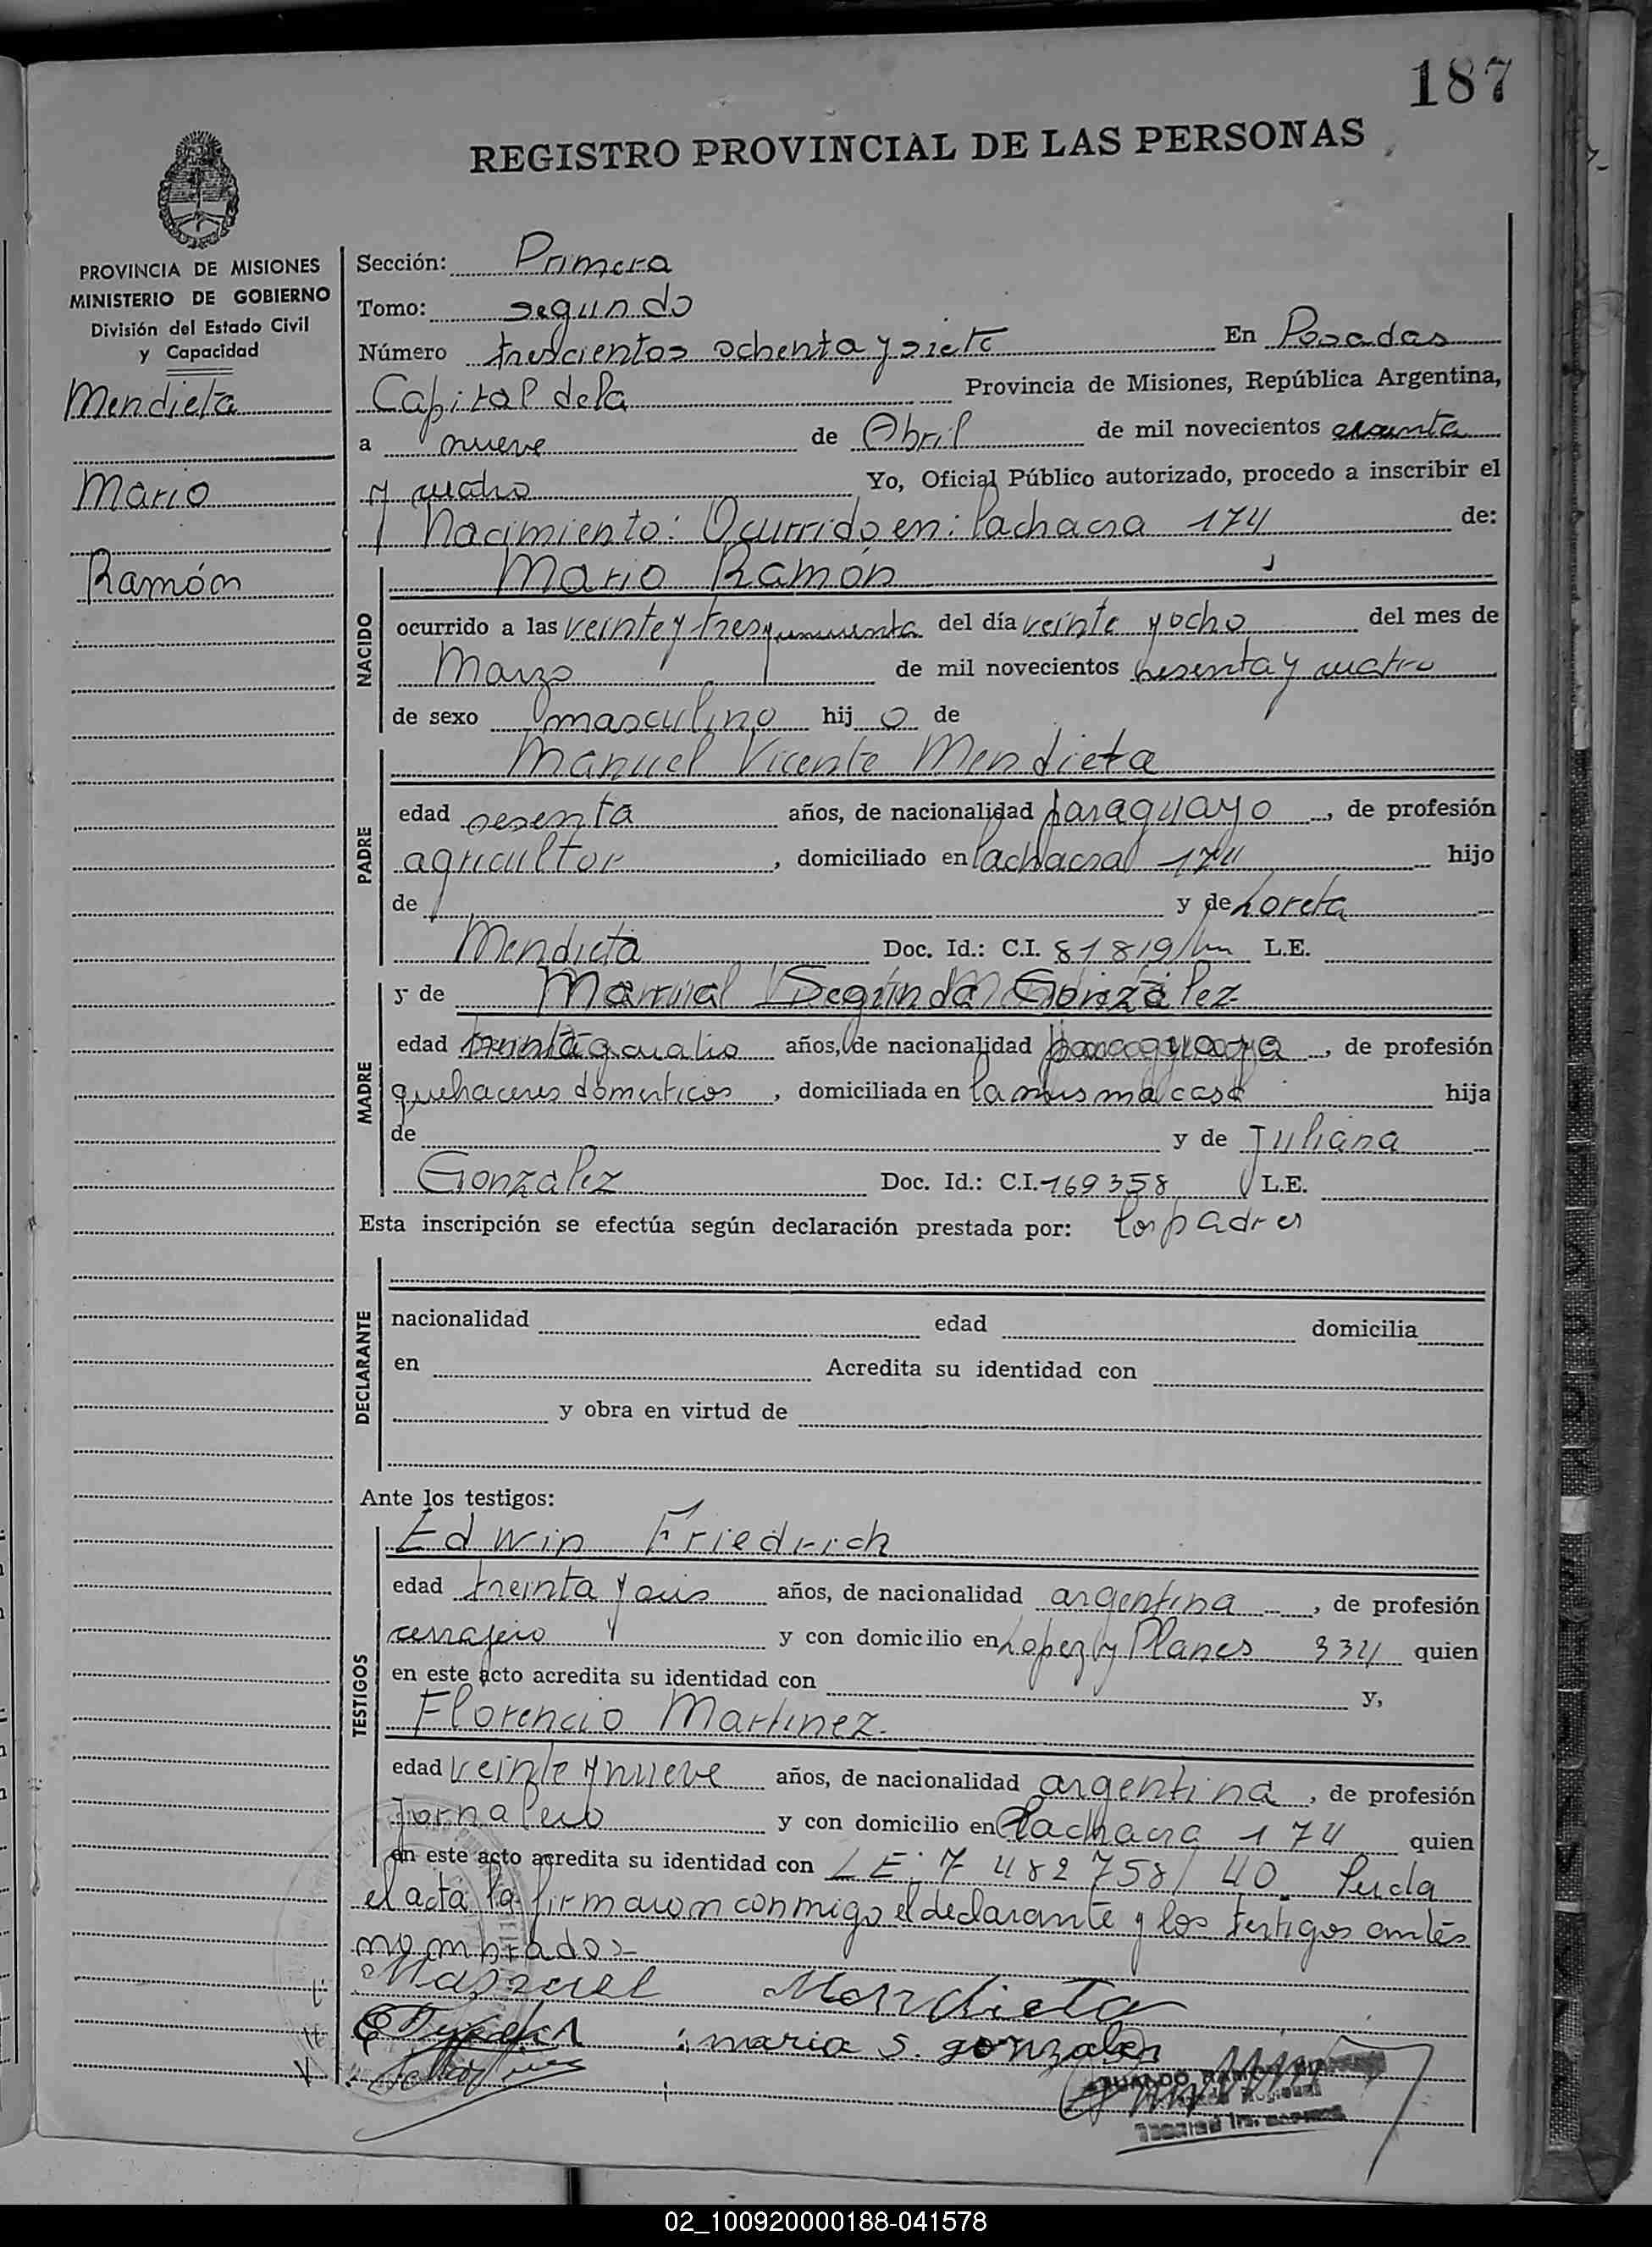 187
REGISTRO PROVINCIAL DE LAS PERSONAS
PROVINCIA DE MISIONES
MINISTERIO DE GOBIERNO
División del Estado Civil
y Capacidad
Mendieta
Mario
Ramón
Sección: Primera
Tomo: segundo
Número trescientos ochenta y siete En Posadas
Capital de la Provincia de Misiones, República Argentina,
a nueve de Abril de mil novecientos sesenta
y cuatro Yo, Oficial Público autorizado, procedo a inscribir el
Nacimiento: Ocurrido en: Lachacra 174 de:
NACIDO
Mario Ramón
ocurrido a las veinte y tres y cincuenta del día veinte y ocho del mes de
Marzo de mil novecientos sesenta y cuatro
de sexo masculino hij o de
PADRE
Manuel Vicente Mendieta
edad sesenta años, de nacionalidad paraguayo, de profesión
agricultor, domiciliado en Lachacra 174 hijo
de y de Loreta
Mendieta Doc. Id.: C.I. 81819 L.E.
MADRE
y de Segunda González
edad treinta y cuatro años, de nacionalidad paraguaya, de profesión
quehaceres domesticos, domiciliada en la misma casa hija
de y de Juliana
González Doc. Id.: C.I. 169358 L.E.
Esta inscripción se efectúa según declaración prestada por: los padres
DECLARANTE
nacionalidad edad domicilia
en Acredita su identidad con
y obra en virtud de
Ante los testigos:
TESTIGOS
Edwin Friedrich
edad treinta y seis años, de nacionalidad argentina, de profesión
cerrajero y con domicilio en Lopez y Planes 334 quien
en este acto acredita su identidad con y,
Florencio Martinez.
edad veinte y nueve años, de nacionalidad argentina, de profesión
Jornalero y con domicilio en Lachacra 174 quien
en este acto acredita su identidad con LE: 7 482 758/40. Leida
el acta la firmaron conmigo el declarante y los testigos antes
nombrados-
Manuel Mendieta
maria s. gonzalez
02_100920000188-041578